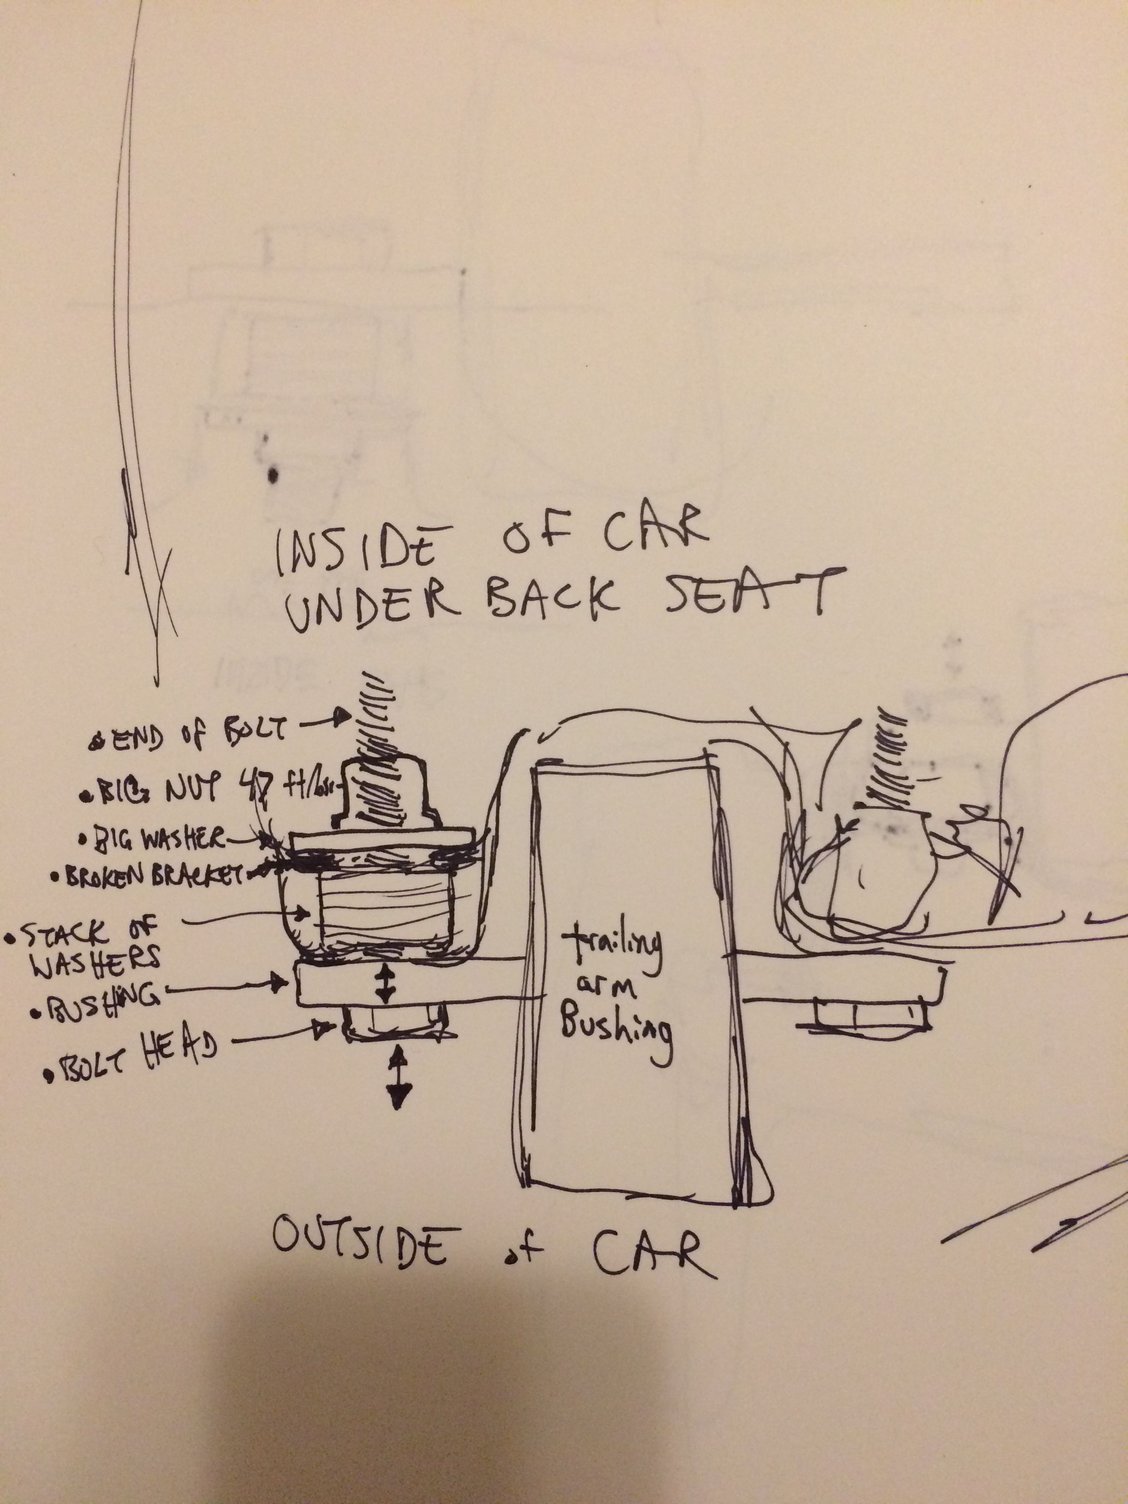 INSIDE OF CAR
UNDER BACK SEAT
• END OF BOLT
• BIG NUT 47 ft/lbs
• BIG WASHER
• BROKEN BRACKET
• STACK OF
WASHERS
• BUSHING
• BOLT HEAD
trailing
arm
Bushing
OUTSIDE of CAR